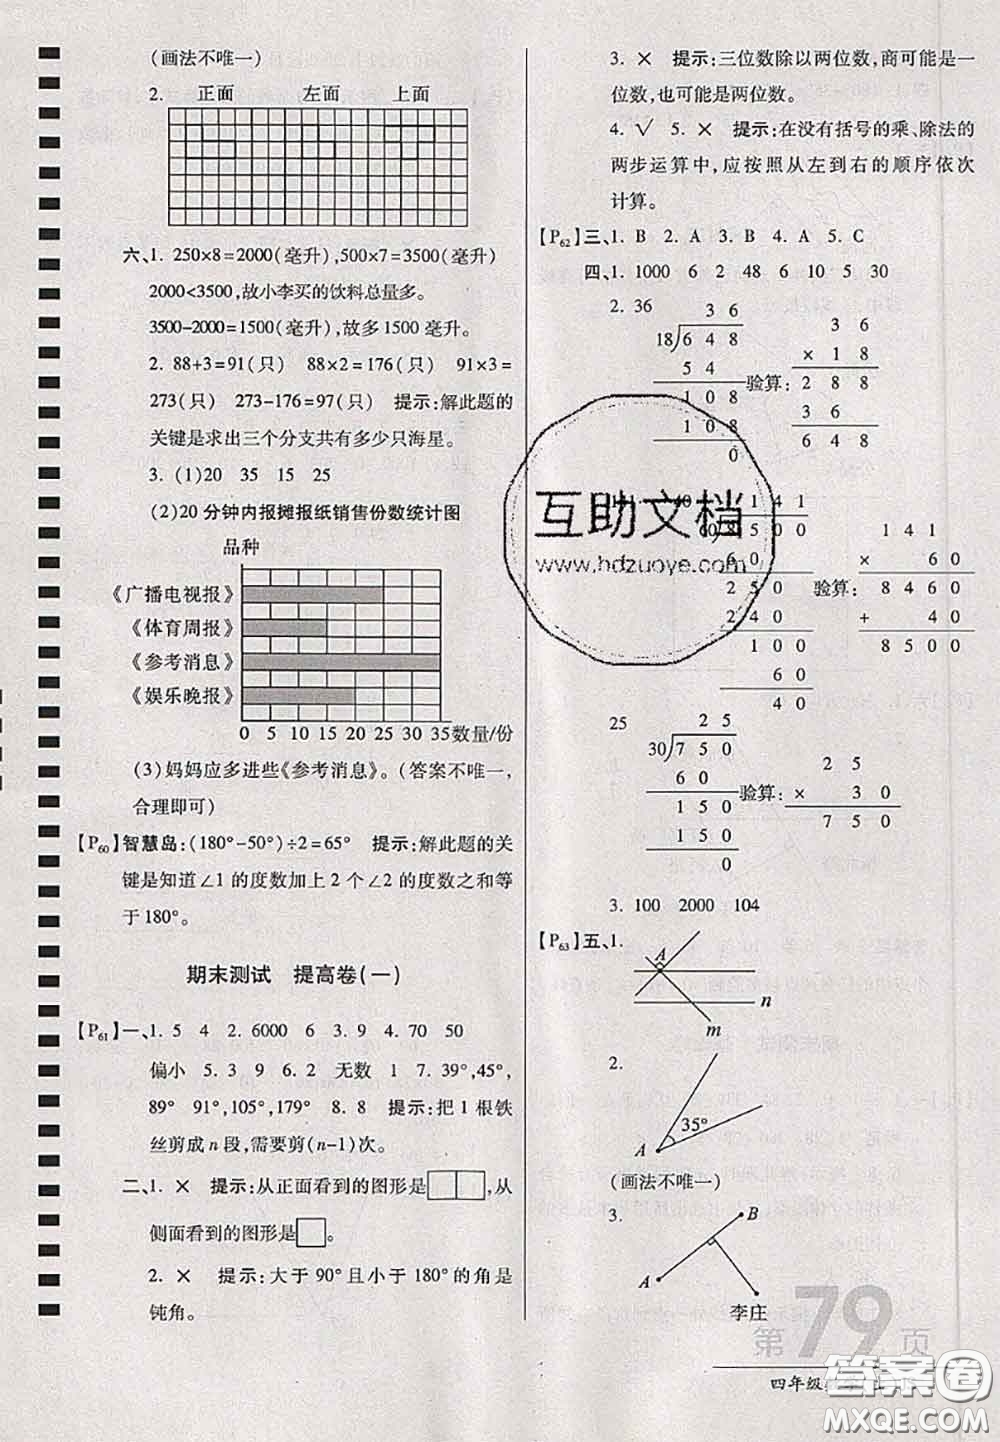 (画法不唯一)
2. 正面 左面 上面
六、1. 250×8=2000(毫升),500×7=3500(毫升)
2000<3500,故小李买的饮料总量多。
3500-2000=1500(毫升),故多 1500 毫升。
2. 88+3=91(只) 88×2=176(只) 91×3=
273(只) 273-176=97(只) 提示:解此题的
关键是求出三个分支共有多少只海星。
3. (1)20 35 15 25
(2)20 分钟内报摊报纸销售份数统计图
品种
《广播电视报》
《体育周报》
《参考消息》
《娱乐晚报》
0 5 10 15 20 25 30 35数量/份
(3)妈妈应多进些《参考消息》。(答案不唯一,
合理即可)
【P60】智慧岛:(180°-50°)÷2=65° 提示:解此题的关
键是知道∠1的度数加上2个∠2的度数之和等
于180°。
期末测试 提高卷(一)
【P61】一、1. 5 4 2. 6000 6 3. 9 4. 70 50
偏小 5. 3 9 6. 2 无数 1 7. 39°,45°,
89° 91°,105°,179° 8. 8 提示:把 1 根铁
丝剪成n段,需要剪(n-1)次。
二、1. × 提示:从正面看到的图形是 ,从
侧面看到的图形是 。
2. × 提示:大于 90°且小于 180°的角是
钝角。
3. × 提示:三位数除以两位数,商可能是一
位数,也可能是两位数。
4. √ 5. × 提示:在没有括号的乘、除法的
两步运算中,应按照从左到右的顺序依次
计算。
【P62】三、1. B 2. A 3. B 4. A 5. C
四、1. 1000 6 2 48 6 10 5 30
2. 36
3 6
18 6 4 8
5 4
1 0 8
1 0 8
0
验算:
3 6
× 1 8
2 8 8
3 6
6 4 8
1 4 1
60 8 5 0 0
6 0
2 5 0
2 4 0
1 0 0
6 0
4 0
验算:
1 4 1
× 6 0
8 4 6 0
+ 4 0
8 5 0 0
25
2 5
30 7 5 0
6 0
1 5 0
1 5 0
0
验算:
2 5
× 3 0
7 5 0
3. 100 2000 104
【P63】五、1.
A
n
m
2.
35°
A
(画法不唯一)
3.
B
A
李庄
第79页
四年级
互助文档
www.hdzuoye.com
答案圈
MXQE.COM